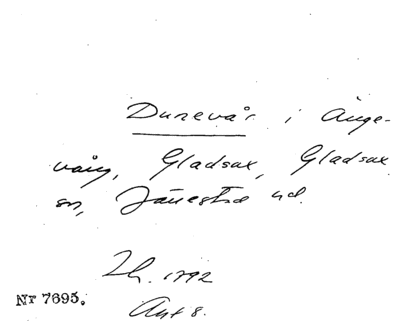 Dunevår i Änge-
vång, Gladsax, Gladsax
sn, Järrestad hd.
Lh. 1792
Akt 8.
Nr 7695.